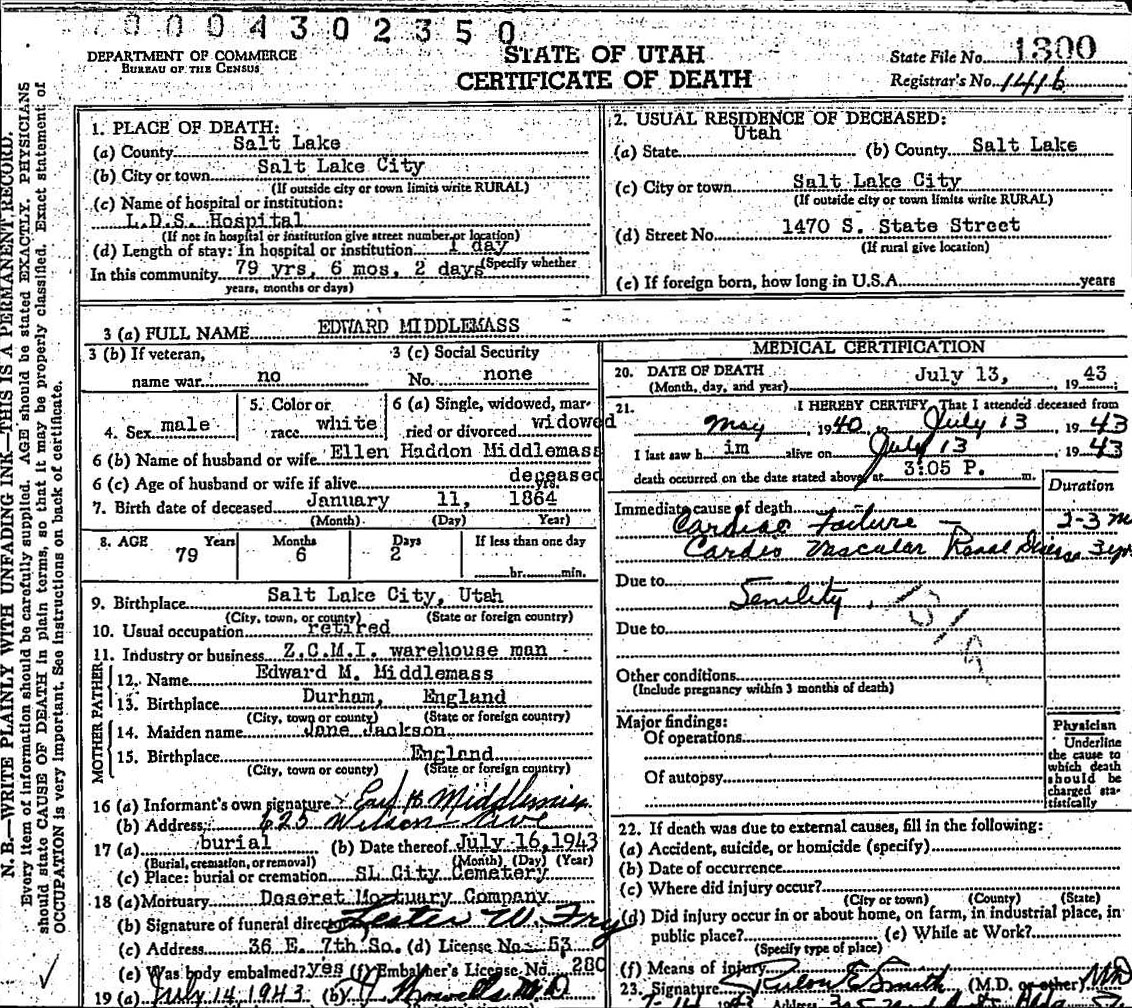 0004302350
DEPARTMENT OF COMMERCE
BUREAU OF THE CENSUS
STATE OF UTAH
CERTIFICATE OF DEATH
State File No. 1300
Registrar's No. 1416
N. B.—WRITE PLAINLY WITH UNFADING INK—THIS IS A PERMANENT RECORD.
Every item of information should be carefully supplied. AGE should be stated EXACTLY. PHYSICIANS
should state CAUSE OF DEATH in plain terms, so that it may be properly classified. Exact statement of
OCCUPATION is very important. See instructions on back of certificate.
1. PLACE OF DEATH:
(a) County Salt Lake
(b) City or town Salt Lake City
(If outside city or town limits write RURAL)
(c) Name of hospital or institution:
L.D.S. Hospital
(If not in hospital or institution give street number or location)
(d) Length of stay: In hospital or institution 1 day
(Specify whether
In this community 79 yrs, 6 mos, 2 days
years, months or days)
2. USUAL RESIDENCE OF DECEASED:
(a) State Utah (b) County Salt Lake
(c) City or town Salt Lake City
(If outside city or town limits write RURAL)
(d) Street No. 1470 S. State Street
(If rural give location)
(e) If foreign born, how long in U.S.A. years
3 (a) FULL NAME EDWARD MIDDLEMASS
3 (b) If veteran, name war no
3 (c) Social Security No. none
4. Sex male
5. Color or race white
6 (a) Single, widowed, married or divorced widowed
6 (b) Name of husband or wife Ellen Haddon Middlemass
6 (c) Age of husband or wife if alive deceased yrs.
7. Birth date of deceased January 11, 1864
(Month) (Day) Year)
8. AGE Years Months Days If less than one day
79 6 2 hr. min.
9. Birthplace Salt Lake City, Utah
(City, town, or county) (State or foreign country)
10. Usual occupation retired
11. Industry or business Z.C.M.I. warehouse man
FATHER
12. Name Edward M. Middlemass
13. Birthplace Durham, England
(City, town or county) (State or foreign country)
MOTHER
14. Maiden name Jane Jackson
15. Birthplace England
(City, town or county) (State or foreign country)
16 (a) Informant's own signature H. Middlemiss
(b) Address: 625 Wilson Ave
17 (a) burial (b) Date thereof July 16, 1943
(Burial, cremation, or removal) (Month) (Day) (Year)
(c) Place: burial or cremation SL City Cemetery
18 (a) Mortuary Deseret Mortuary Company
(b) Signature of funeral director Lester W. Fry
(c) Address 36 E. 7th So. (d) License No. 53
(e) Was body embalmed? yes (f) Embalmer's License No. 280
19 (a) July 14, 1943 (b)
MEDICAL CERTIFICATION
20. DATE OF DEATH July 13, 1943
(Month, day, and year)
21. I HEREBY CERTIFY, That I attended deceased from
May, 1940, July 13, 1943
I last saw h im alive on July 13, 1943
death occurred on the date stated above, at 3:05 P. m.
Duration
Immediate cause of death
Cardiac Failure — 2-3 m
Cardio Vascular Renal Disease 3 yrs
Due to Senility
Due to
Other conditions
(Include pregnancy within 3 months of death)
Major findings:
Of operations
Of autopsy
Physician
Underline
the cause to
which death
should be
charged sta-
tistically
22. If death was due to external causes, fill in the following:
(a) Accident, suicide, or homicide (specify)
(b) Date of occurrence
(c) Where did injury occur?
(City or town) (County) (State)
(d) Did injury occur in or about home, on farm, in industrial place, in
public place? (e) While at Work?
(Specify type of place)
(f) Means of injury
23. Signature E Smith (M.D. or other) MD